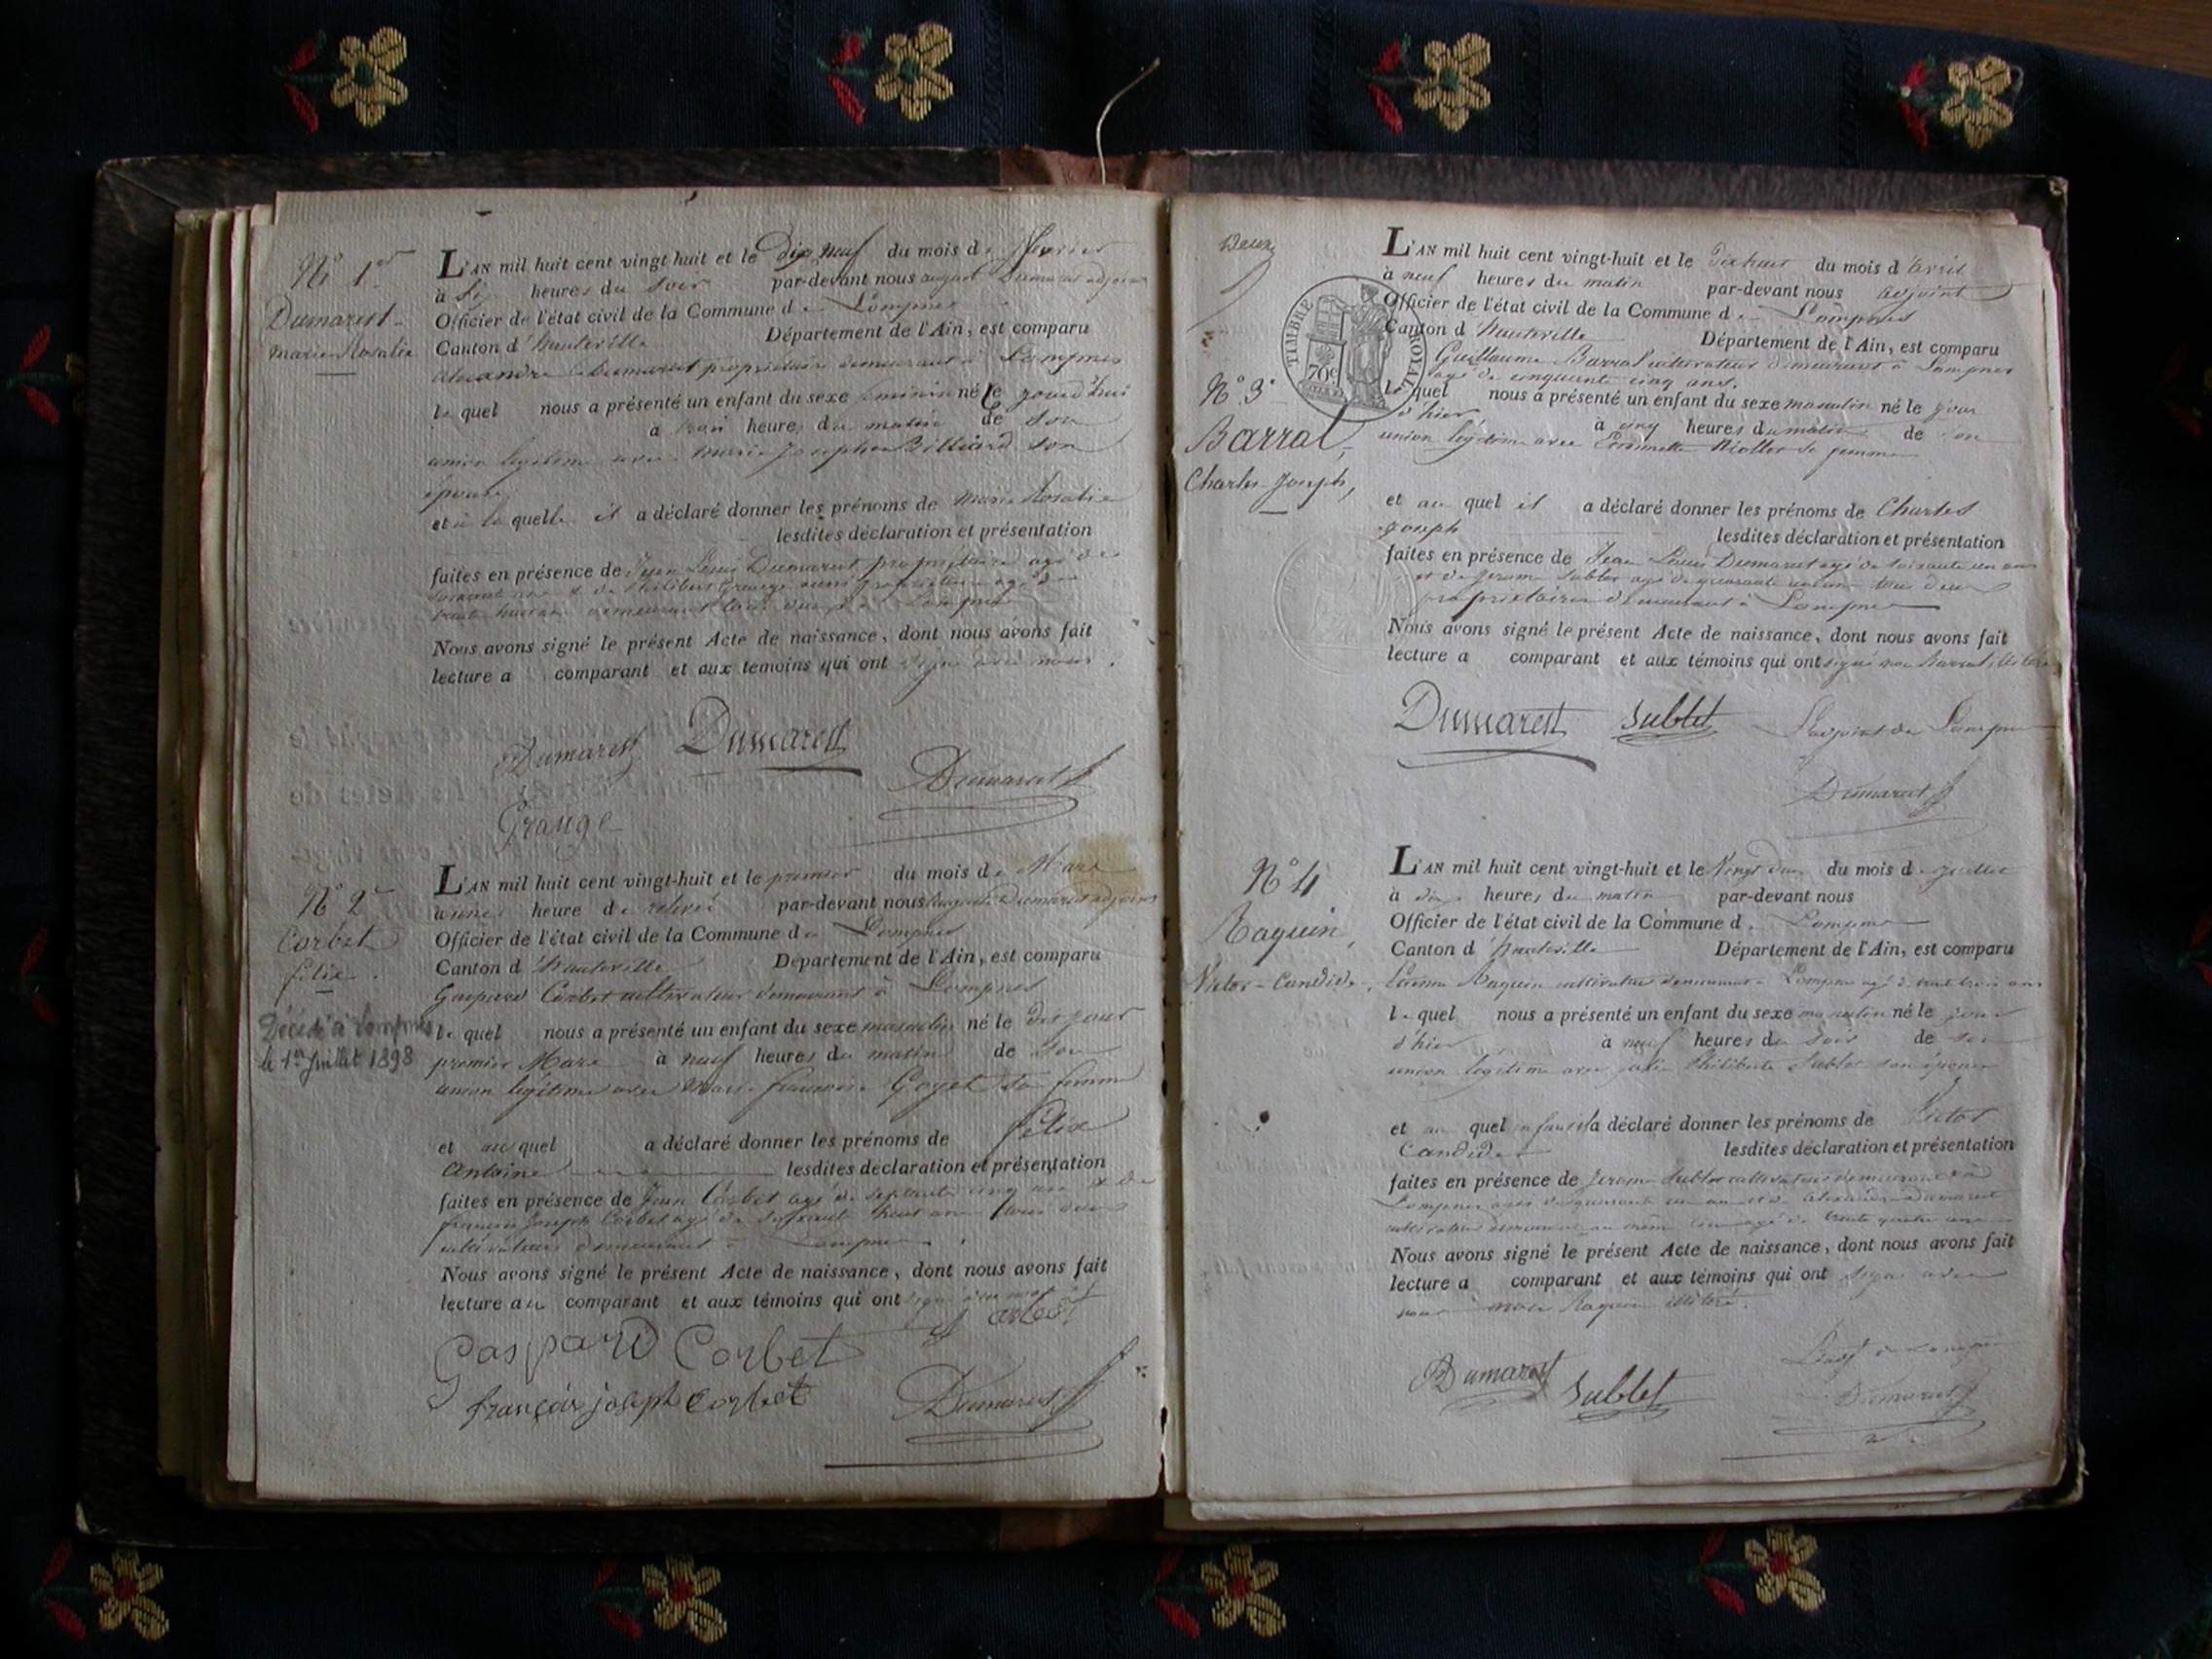 N° 1er
Dumarest
marie Rosalie
L'AN mil huit cent vingt-huit et le Dix neuf du mois de février
à six heures du soir par-devant nous august Dumarest adjoint
Officier de l'état civil de la Commune de Lompnes
Canton d'hauteville Département de l'Ain, est comparu
alexandre Dumarest propriétaire demeurant à Lompnes
lequel nous a présenté un enfant du sexe feminin né le jourd'hui
à heures du matin de son
union legitime avec Marie Josephe Billiard son
épouse
et à laquelle il a déclaré donner les prénoms de Marie Rosalie
lesdites déclaration et présentation
faites en présence de Jean Louis Dumarest propriétaire agé de
soixante ans & de Philibert Grange aussi propriétaire agé de
trente huit ans demeurant tous deux à Lompnes
Nous avons signé le présent Acte de naissance, dont nous avons fait
lecture a comparant et aux temoins qui ont signé avec nous.
Dumarest Dumarest
Dumarest
Grange
N° 2e
Corbet
félix.
Décédé à Lompnes
le 1er Juillet 1898
L'AN mil huit cent vingt-huit et le premier du mois de Mars
à une heure de relevée par-devant nous auguste Dumarest adjoint
Officier de l'état civil de la Commune de Lompnes
Canton d'hauteville Département de l'Ain, est comparu
Gaspard Corbet cultivateur demeurant à Lompnes
lequel nous a présenté un enfant du sexe masculin né le dit jour
premier Mars à neuf heures du matin de son
union legitime avec Marie françoise Goyet sa femme
et au quel a déclaré donner les prénoms de félix
antoine lesdites déclaration et présentation
faites en présence de Jean Corbet agé de septante cinq ans & de
françois Joseph Corbet agé de soixante huit ans tous deux
cultivateurs demeurant à Lompnes.
Nous avons signé le présent Acte de naissance, dont nous avons fait
lecture au comparant et aux témoins qui ont signé avec nous
Corbet
Gaspard Corbet
françois joseph Corbet Dumarest
Deux
TIMBRE ROYAL
70c
N° 3e
Barral,
Charles Joseph,
L'AN mil huit cent vingt-huit et le Dix huit du mois d'avril
à neuf heures du matin par-devant nous adjoint
Officier de l'état civil de la Commune de Lompnes
Canton d'hauteville Département de l'Ain, est comparu
Guillaume Barral cultivateur demeurant à Lompnes
agé de cinquante cinq ans.
lequel nous a présenté un enfant du sexe masculin né le jour
d'hier à cinq heures du matin de son
union legitime avec Niollet sa femme
et au quel il a déclaré donner les prénoms de Charles
Joseph lesdites déclaration et présentation
faites en présence de Jean Louis Dumarest agé de soixante un ans
et de Jerome Sublet agé de quarante un ans tous deux
propriétaires demeurant à Lompnes
Nous avons signé le présent Acte de naissance, dont nous avons fait
lecture a comparant et aux témoins qui ont signé non Barral illitéré
Dumarest Sublet L'adjoint de Lompnes
Dumarest
N° 4
Raquin,
Victor-Candide,
L'AN mil huit cent vingt-huit et le Vingt deux du mois de juillet
à dix heures du matin par-devant nous
Officier de l'état civil de la Commune de Lompnes
Canton d'hauteville Département de l'Ain, est comparu
Raquin cultivateur demeurant à Lompnes agé de trente trois ans
lequel nous a présenté un enfant du sexe masculin né le jour
d'hier à neuf heures du soir de son
union legitime avec Philiberte Sublet son épouse
et au quel enfant il a déclaré donner les prénoms de Victor
Candide lesdites déclaration et présentation
faites en présence de Jerome Sublet cultivateur demeurant à
Lompnes agé de quarante un ans et de alexandre Dumarest
cultivateur demeurant au même lieu agé de trente quatre ans
Nous avons signé le présent Acte de naissance, dont nous avons fait
lecture a comparant et aux témoins qui ont signé avec
nous non Raquin illitéré.
Dumarest Sublet L'adjt de Lompnes
Dumarest